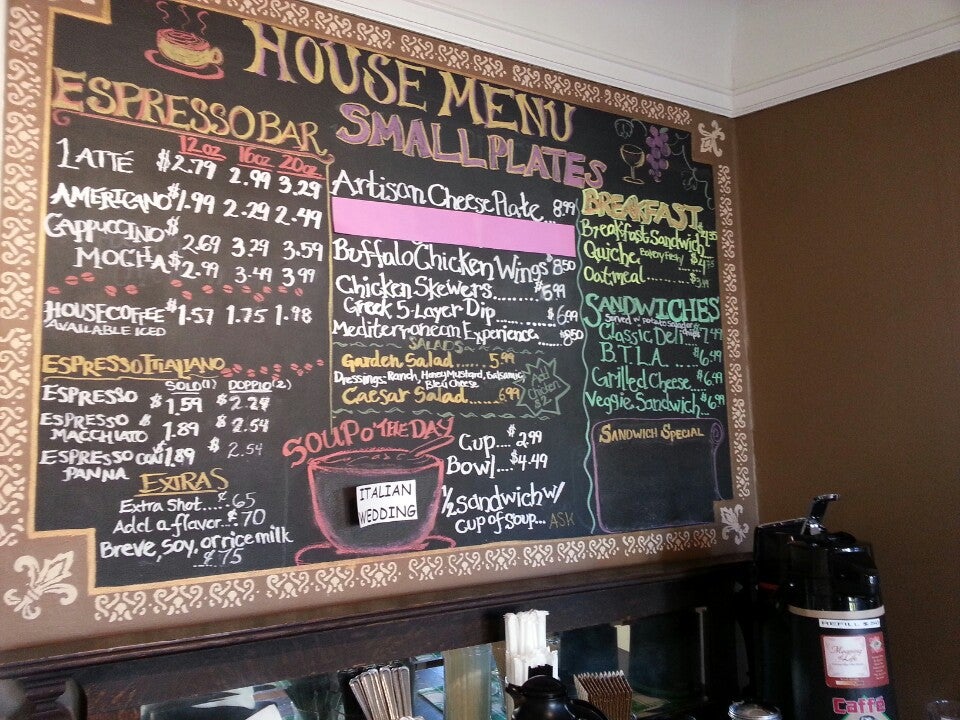 HOUSE MENU
ESPRESSO BAR
12oz 16oz 20oz
LATTÉ $2.79 2.99 3.29
AMERICANO $1.99 2.29 2.49
CAPPUCCINO $2.69 3.29 3.59
MOCHA $2.99 3.49 3.99
HOUSE COFFEE $1.57 1.75 1.98
AVAILABLE ICED
ESPRESSO ITALIANO
SOLO(1) DOPPIO(2)
ESPRESSO $1.59 $2.29
ESPRESSO MACCHIATO $1.89 $2.54
ESPRESSO CON PANNA $1.89 $2.54
EXTRAS
Extra Shot....$.65
Add a flavor...$.70
Breve, soy, or rice milk
..$.75
SMALL PLATES
Artisan Cheese Plate 8.99
Buffalo Chicken Wings $8.50
Chicken Skewers........ $6.99
Greek 5-Layer Dip........ $6.99
Mediterranean Experience.... $8.50
SALADS
Garden Salad...... 5.99
Dressings: Ranch, Honey Mustard, Balsamic,
Bleu Cheese
Caesar Salad...... 6.99
Add Chicken $2
SOUP O' THE DAY
ITALIAN
WEDDING
Cup....$2.99
Bowl....$4.49
1/2 Sandwich w/
cup of soup... ASK
BREAKFAST
Breakfast Sandwich
Quiche
Oatmeal
SANDWICHES
Served w/ potato salad or
Classic Deli... $7.99
B.T.L.A. $6.99
Grilled Cheese... $6.99
Veggie Sandwich... $6.99
SANDWICH SPECIAL
REFILL $.50
Caffé